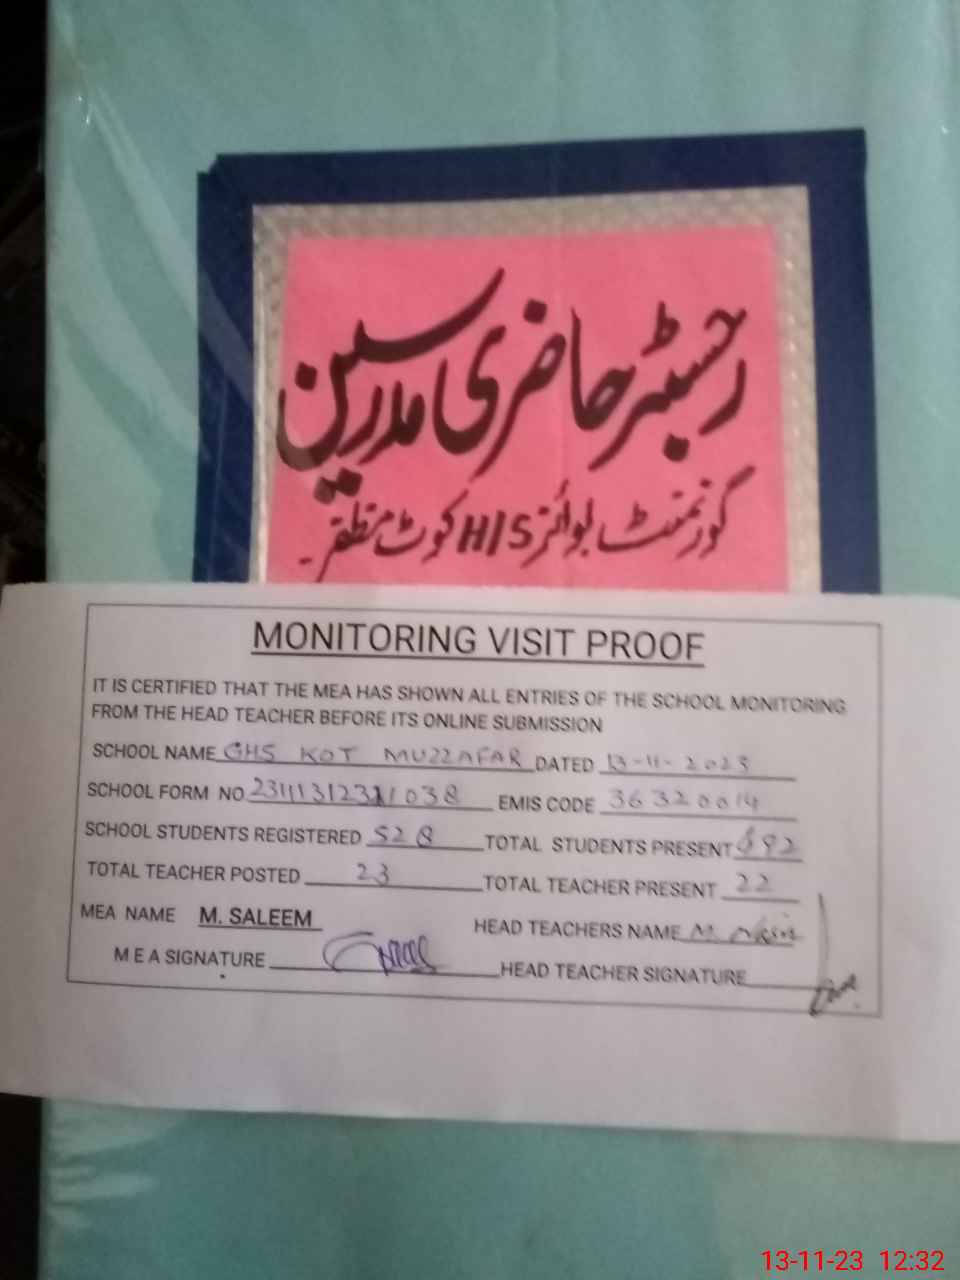 رجسٹر حاضری مدرسین
گورنمنٹ بوائز H/S کوٹ مظفر
MONITORING VISIT PROOF
IT IS CERTIFIED THAT THE MEA HAS SHOWN ALL ENTRIES OF THE SCHOOL MONITORING
FROM THE HEAD TEACHER BEFORE ITS ONLINE SUBMISSION
SCHOOL NAME GHS KOT MUZZAFAR DATED 13-11-2023
SCHOOL FORM NO EMIS CODE 36320014
SCHOOL STUDENTS REGISTERED 528 TOTAL STUDENTS PRESENT
TOTAL TEACHER POSTED 23 TOTAL TEACHER PRESENT 22
MEA NAME M. SALEEM HEAD TEACHERS NAME M.
MEA SIGNATURE HEAD TEACHER SIGNATURE
13-11-23 12:32